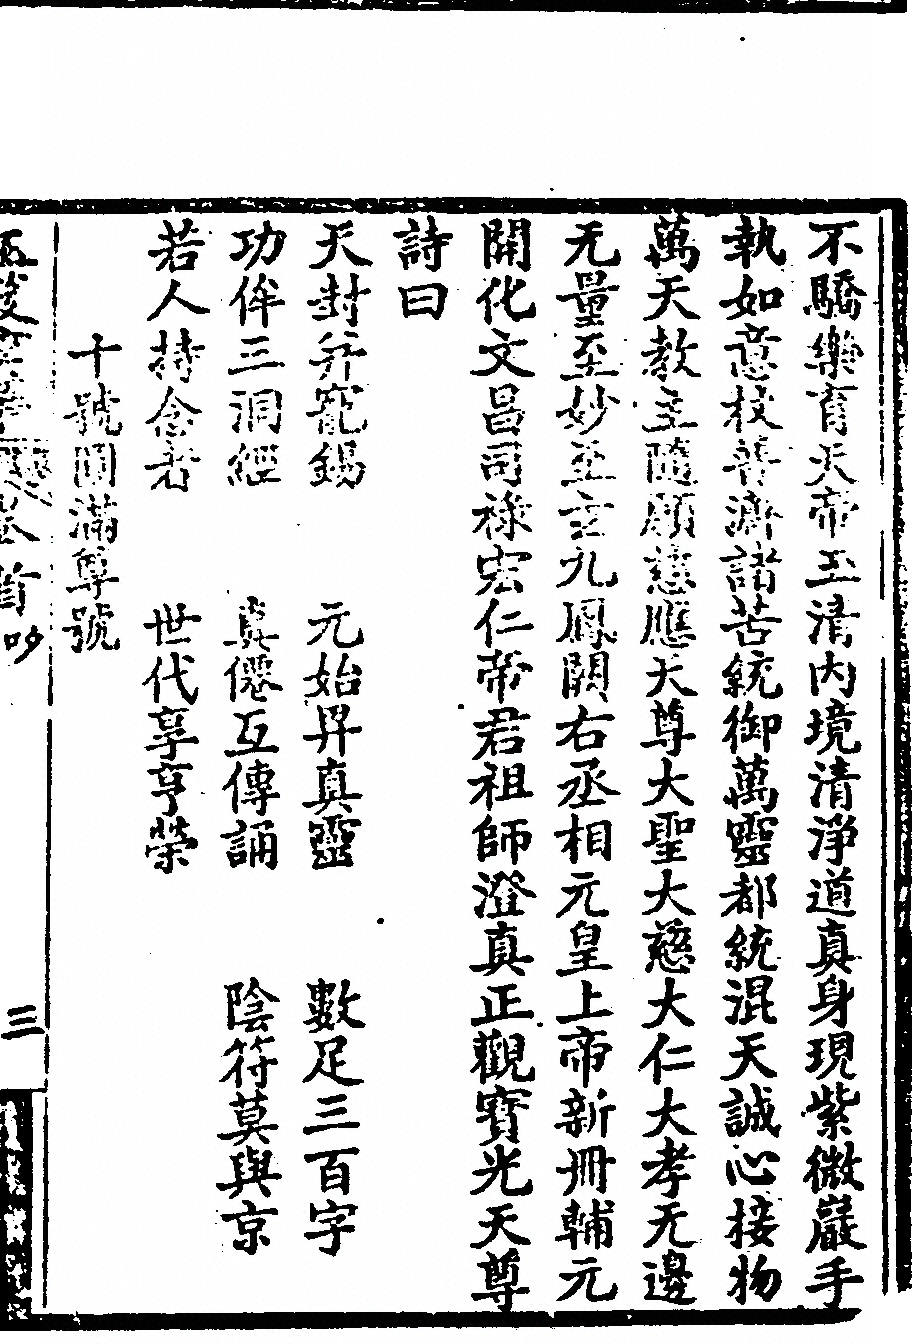 不驕樂育天帝玉清內境清淨道真身現紫微巖手
執如意杖普濟諸苦統御萬靈都統混天誠心接物
萬天教主隨願慈應大天尊大聖大慈大仁大孝无邊
无量至妙至玄九鳳闕右丞相元皇上帝新冊輔元
開化文昌司祿宏仁帝君祖師澄真正觀寶光天尊
詩曰
天封并寵錫 元始昇真靈 數足三百字
功侔三洞經 真僊互傳誦 陰符莫與京
若人持念者 世代享亨榮
十號圓滿尊號
卷首 吵
三